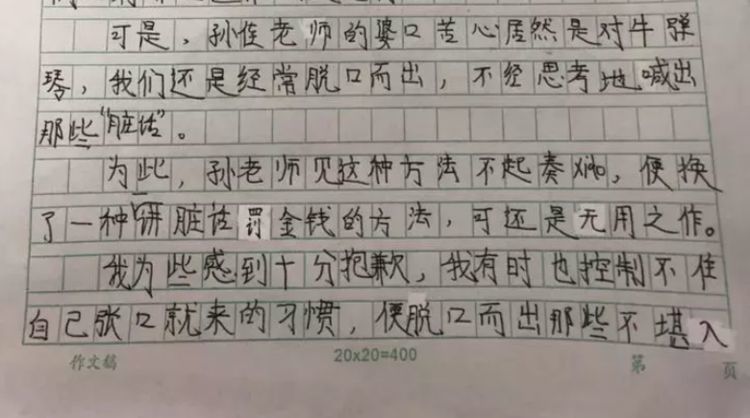 可是，孙佳老师的婆口苦心居然是对牛弹
琴，我们还是经常脱口而出，不经思考地喊出
那些“脏话”。
为此，孙老师见这种方法不起奏效，便换
了一种讲脏话罚金钱的方法，可还是无用之作。
我为些感到十分抱歉，我有时也控制不住
自己张口就来的习惯，便脱口而出那些不堪入
作文稿 20x20=400 第 页